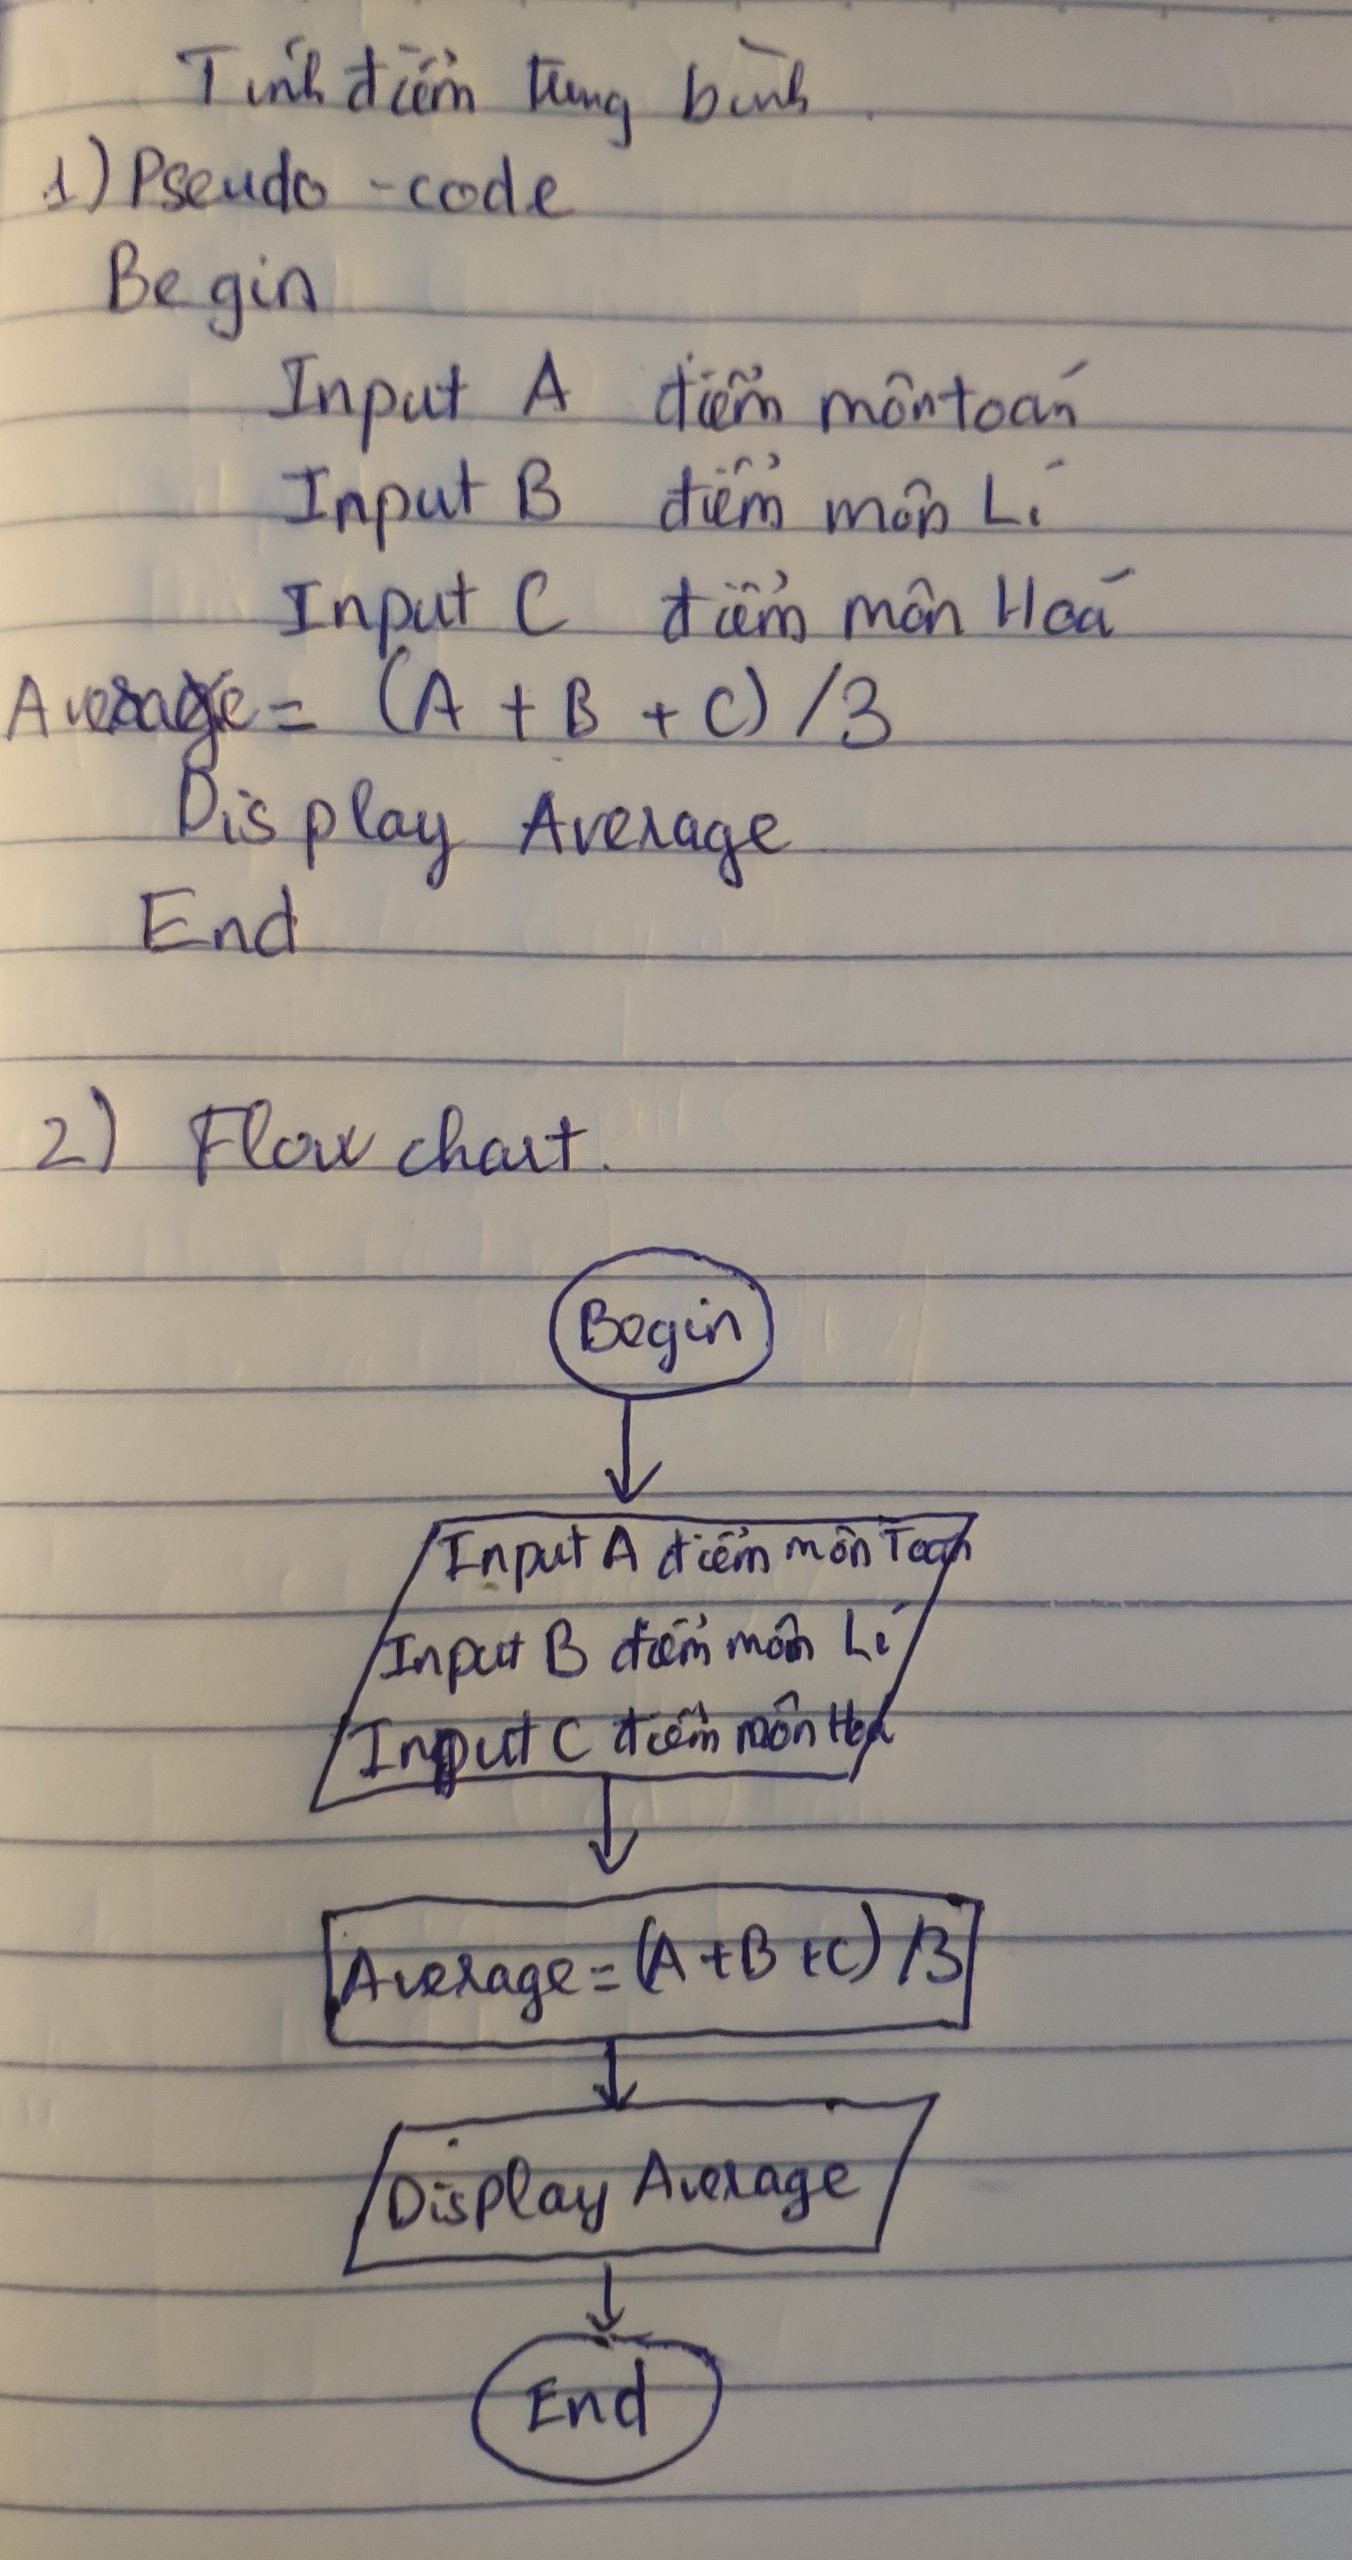 Tính điểm trung bình.
1) Pseudo - code
Begin
Input A điểm môn toán
Input B điểm môn Lí
Input C điểm môn Hoá
Average = (A + B + C) / 3
Display Average
End
2) Flow chart.
Begin
Input A điểm môn Toán
Input B điểm môn Lí
Input C điểm môn Hoá
Average = (A + B + C) / 3
Display Average
End